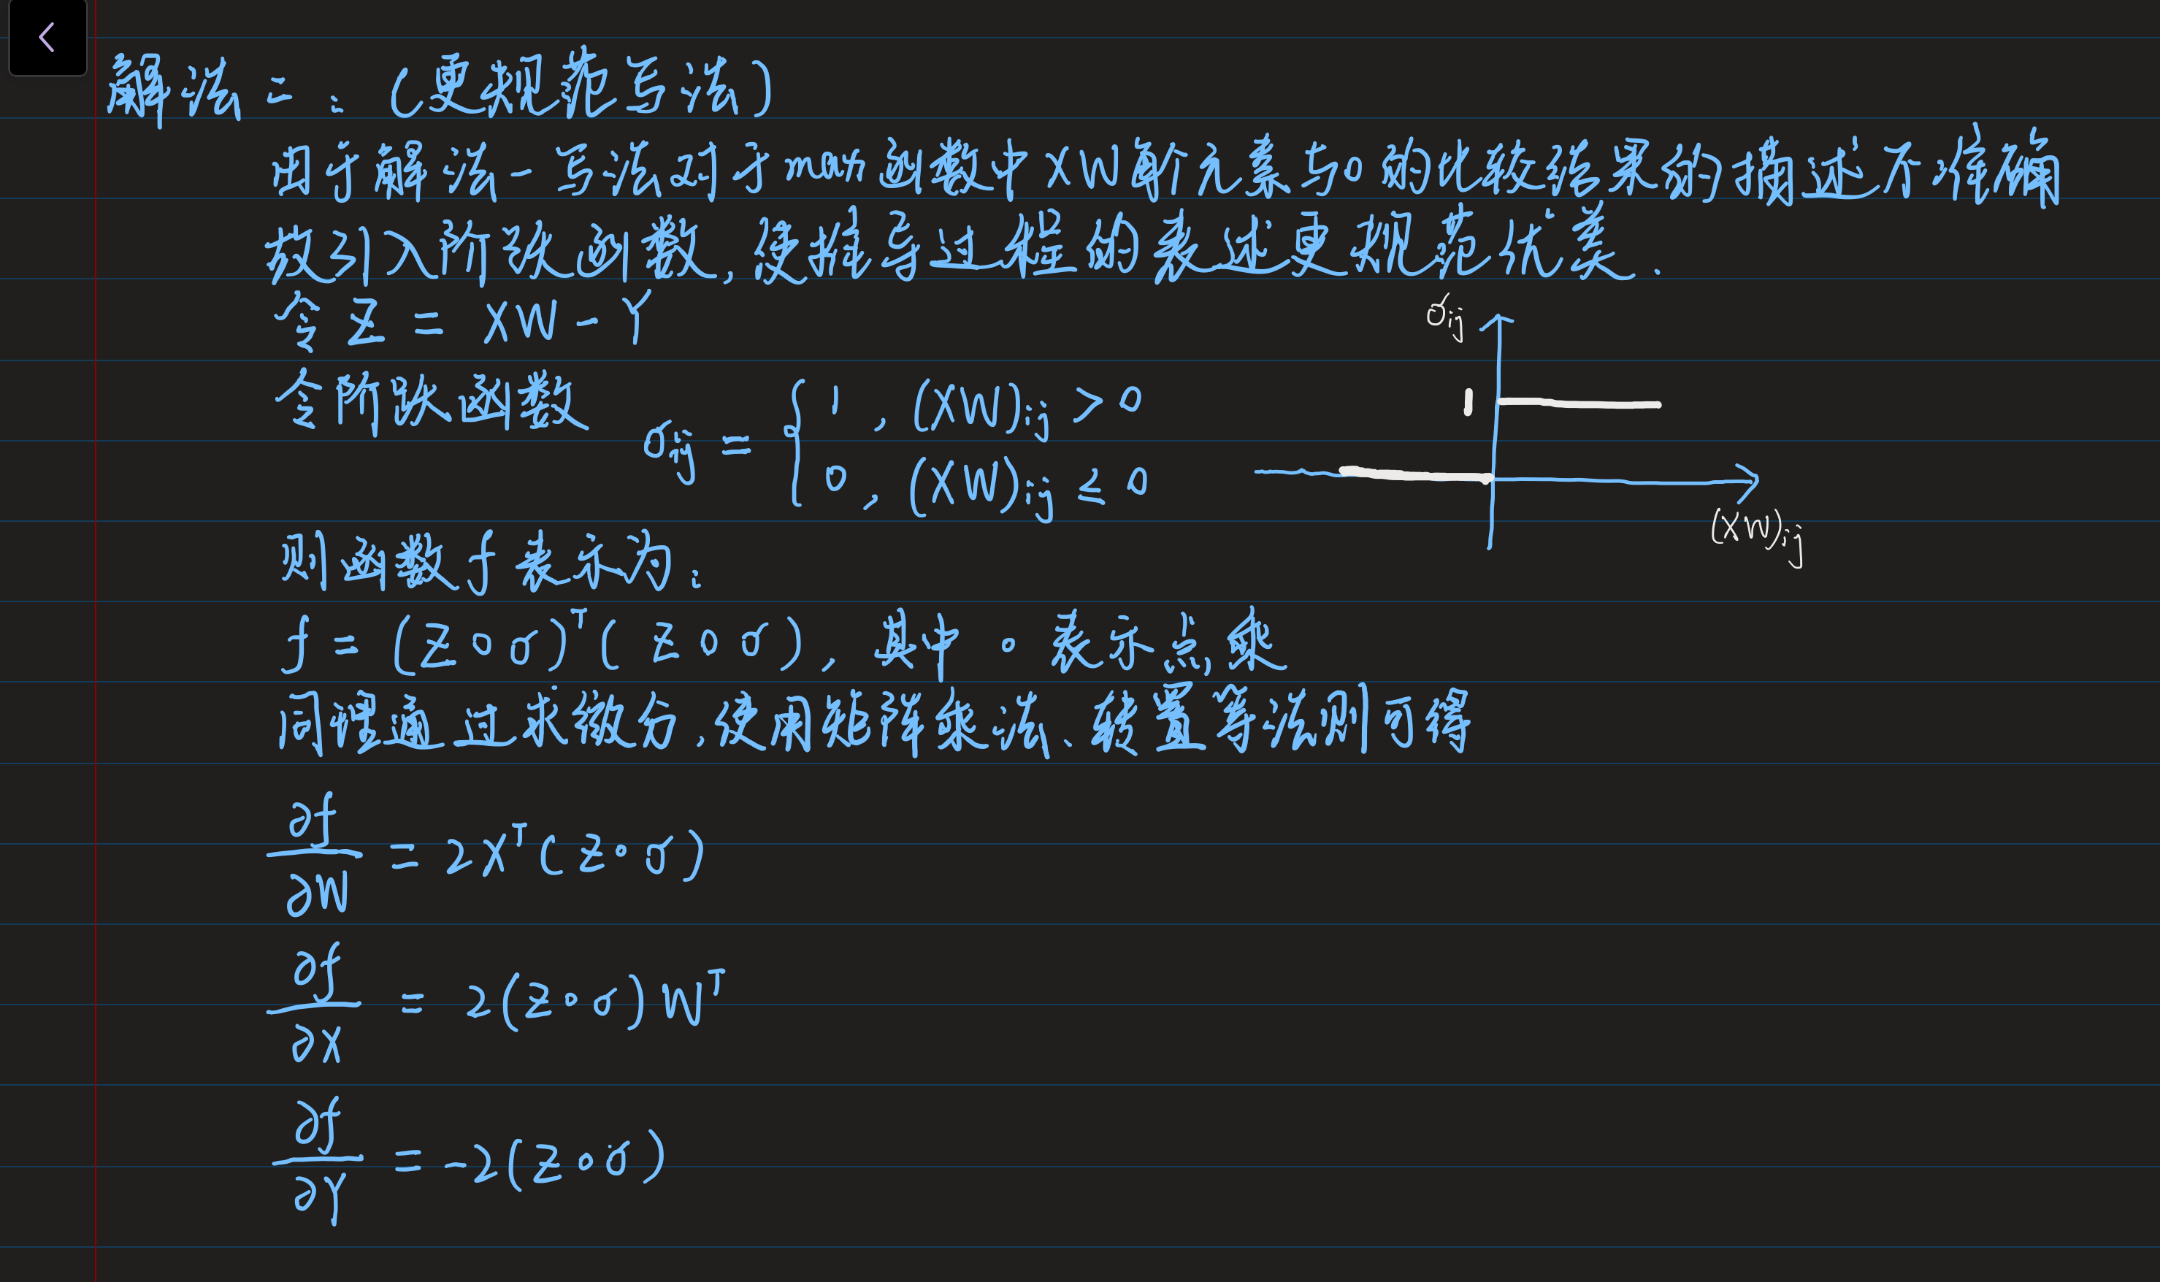 解法二：（更规范写法）
由于解法一写法对于max函数中XW每个元素与0的比较结果的描述不准确
故引入阶跃函数，使推导过程的表述更规范优美．
令 Z = XW - Y
令阶跃函数
σij = { 1 , (XW)ij > 0
0 , (XW)ij ≤ 0
σij
1
(XW)ij
则函数 f 表示为：
f = (Z∘σ)ᵀ(Z∘σ)，其中 ∘ 表示点乘
同理通过求微分，使用矩阵乘法、转置等法则可得
∂f/∂W = 2Xᵀ(Z∘σ)
∂f/∂X = 2(Z∘σ)Wᵀ
∂f/∂Y = -2(Z∘σ)